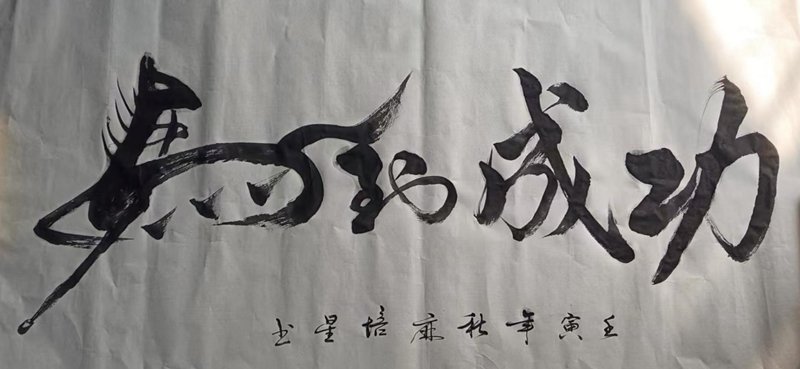 馬到成功
壬寅年秋麻培星书